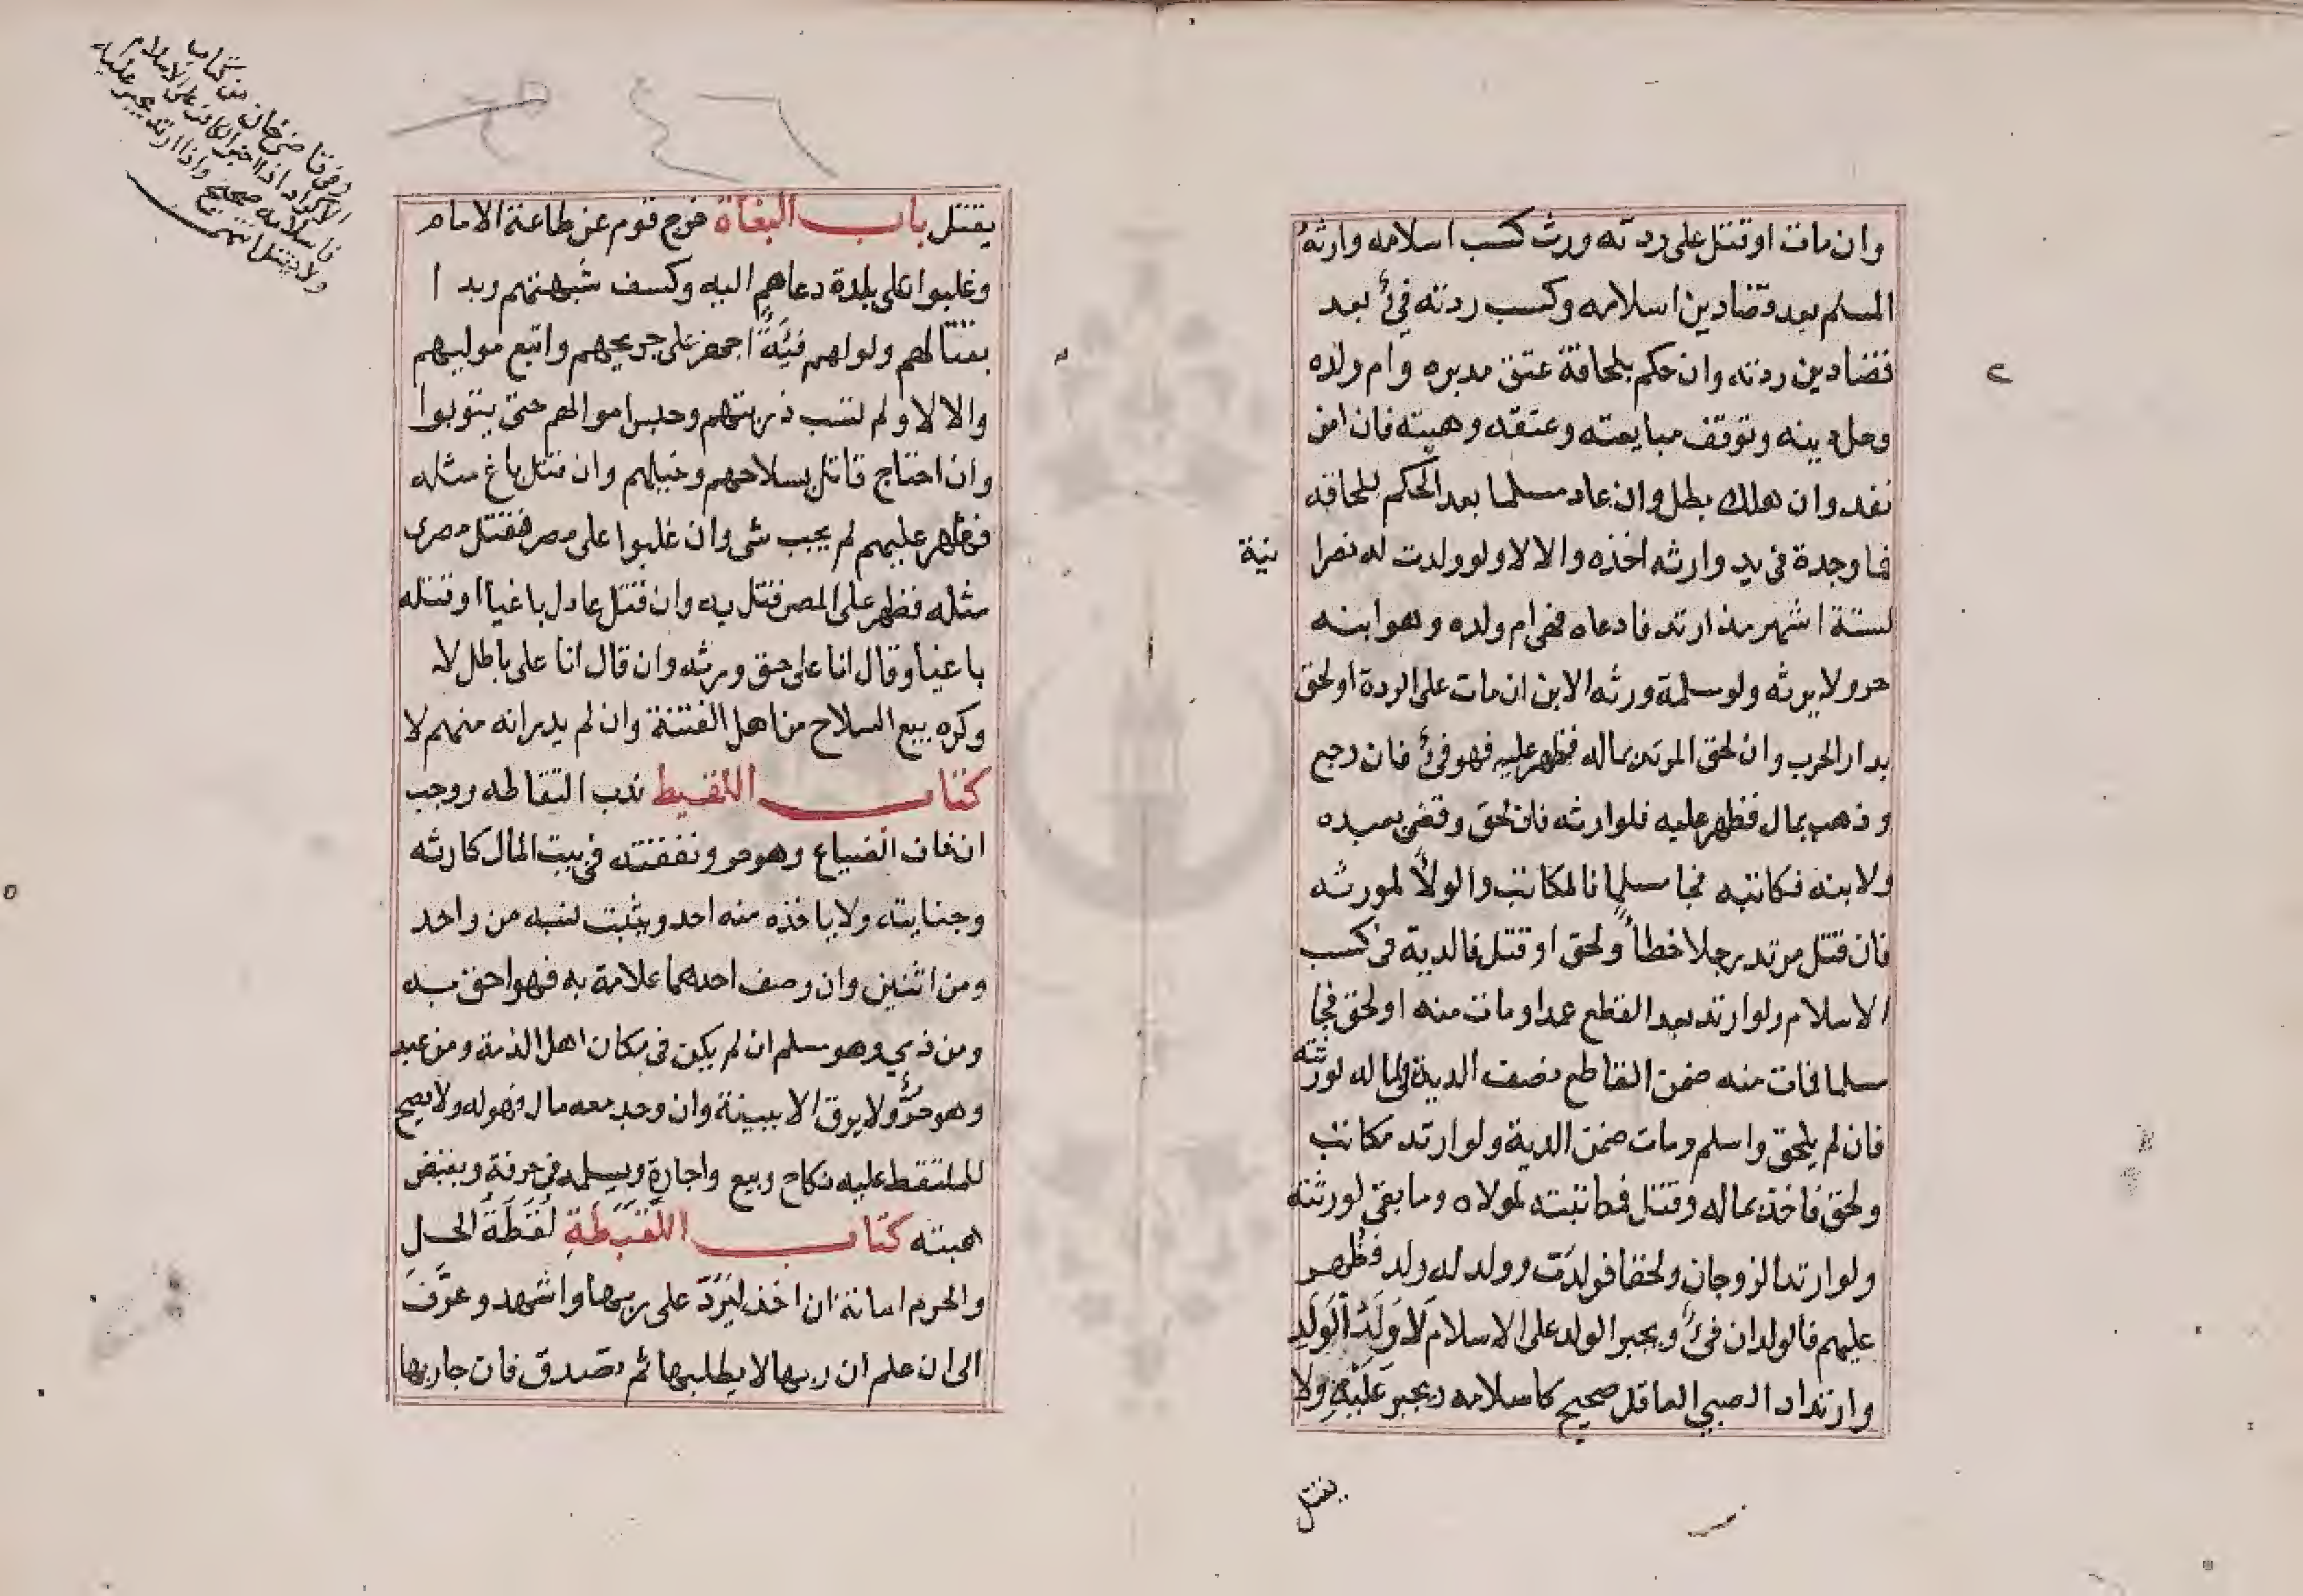 وان مات او قتل على ردته ورث كسب اسلامه وارثه
المسلم بعد قضا دين اسلامه وكسب ردته فئ بعد
قضا دين ردته وان حكم بلحاقة عتق مدبره وام ولده
وحل دينه وتوقف مبايعته وعتقه وهبته فان امن
نفد وان هلك بطل وان عاد مسلما بعد الحكم بلحاقه
فما وجدة فى يد وارثه اخذه والا لا ولو ولدت له نصرا نية
لستة اشهر مذ ارتد فادعاه فهى ام ولده وهو ابنه
حر ولا يرثه ولو مسلمة ورثه الابن ان مات على الردة او لحق
بدار الحرب وان لحق المرتد بماله فظهر عليه فهو فئ فان رجع
وذهب بمال فظهر عليه فلوارثه فان لحق وقضى بعبده
ولابنه فكاتبه فجا مسلما فالمكاتب والولا لمورثه
فان قتل مرتد رجلا خطأ ولحق او قتل فالدية فى كسب
الاسلام ولو ارتد بعد القطع عمدا ومات منه او لحق فجا
مسلما فمات منه ضمن القاطع نصف الدية فى ماله لورثته
فان لم يلحق واسلم ومات ضمن الدية ولو ارتد مكاتب
ولحق فاخذ بماله وقتل فمكاتبته لمولاه وما بقى لورثته
ولو ارتدا لزوجان ولحقا فولدت وولد له ولد فظهر
عليهم فالولدان فئ ويجبر الولد على الاسلام لا وَلَدُ الوَلَدِ
وارتداد الصبي العاقل صحيح كاسلامه ويجبر عَلَيْهِ ولا
يقتل
يقتل باب البغاة خرج قوم عن طاعة الامام
وغلبوا على بلدة دعاهم اليه وكسف شبهتهم وبدا
بقتالهم ولو لهم فئةٌ اجهز على جريحهم واتبع موليهم
والا لا ولم تسب ذريتهم وحبس اموالهم حتى يتوبوا
وان احتاج قاتل بسلاحهم وخيلهم وان قتل باغ مثله
فظهر عليهم لم يجب شى وان غلبوا على مصر فقتل مصرى
مثله فظهر على المصر قتل به وان قتل عادل باغيا او قتله
باغيا وقال انا على حق ورثه وان قال انا على باطل لا
وكره بيع السلاح من اهل الفتنة وان لم يدر انه منهم لا
كتاب اللقيط ندب التقاطه ووجب
ان خاف الضياع وهو حر ونفقته فى بيت المال كارثه
وجنايته ولا ياخذه منه احد ويثبت نسبه من واحد
ومن اثنين وان وصف احدهما علامة به فهو احق به
ومن ذمي وهو مسلم ان لم يكن فى مكان اهل الذمة ومن عبد
وهو حرٌّ ولا يرق الا ببينة وان وجد معه مال فهو له ولا يصح
للملتقط عليه نكاح وبيع واجارة ويسلمه فى حرفة ويقبض
هبته كتاب اللقيطة لُقَطَةُ الحل
والحرم امانة ان اخذ ليَرُدّ على ربها واشهد وعرّف
الى ان علم ان ربها لا يطلبها ثم تصدق فان جا ربها
وفى قاضى خان من كتاب
الاكراه اذا اجبر الكافر على الاسلام
فاسلامه صحيح واذا ارتد يجبر عليه
ولا يقتل انتهى